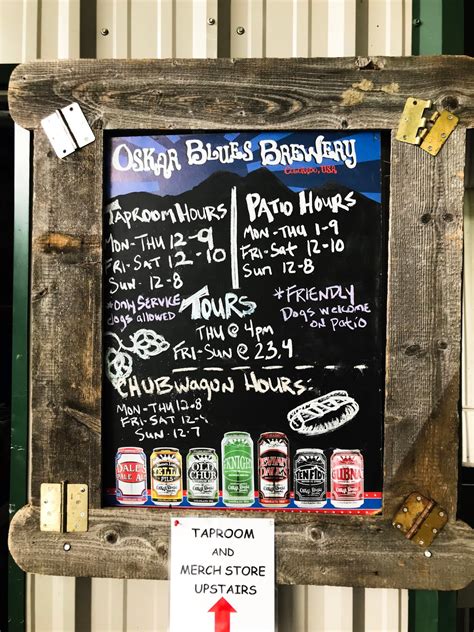 OSKAR BLUES BREWERY
COLORADO, USA
TAPROOM HOURS
MON-THU 12-9
FRI-SAT 12-10
SUN 12-8
*ONLY SERVICE
dogs allowed
PATIO HOURS
MON-THU 1-9
FRI-SAT 12-10
SUN 12-8
*FRIENDLY
Dogs welcome
on PATIO
TOURS
THU @ 4pm
FRI-SUN @ 2,3,4
CHUBWAGON HOURS:
MON-THU 12-8
FRI-SAT 12-
SUN 12-7
DALE'S
PALE ALE
OLD
CHUB
TEN FIDY
TAPROOM
AND
MERCH STORE
UPSTAIRS